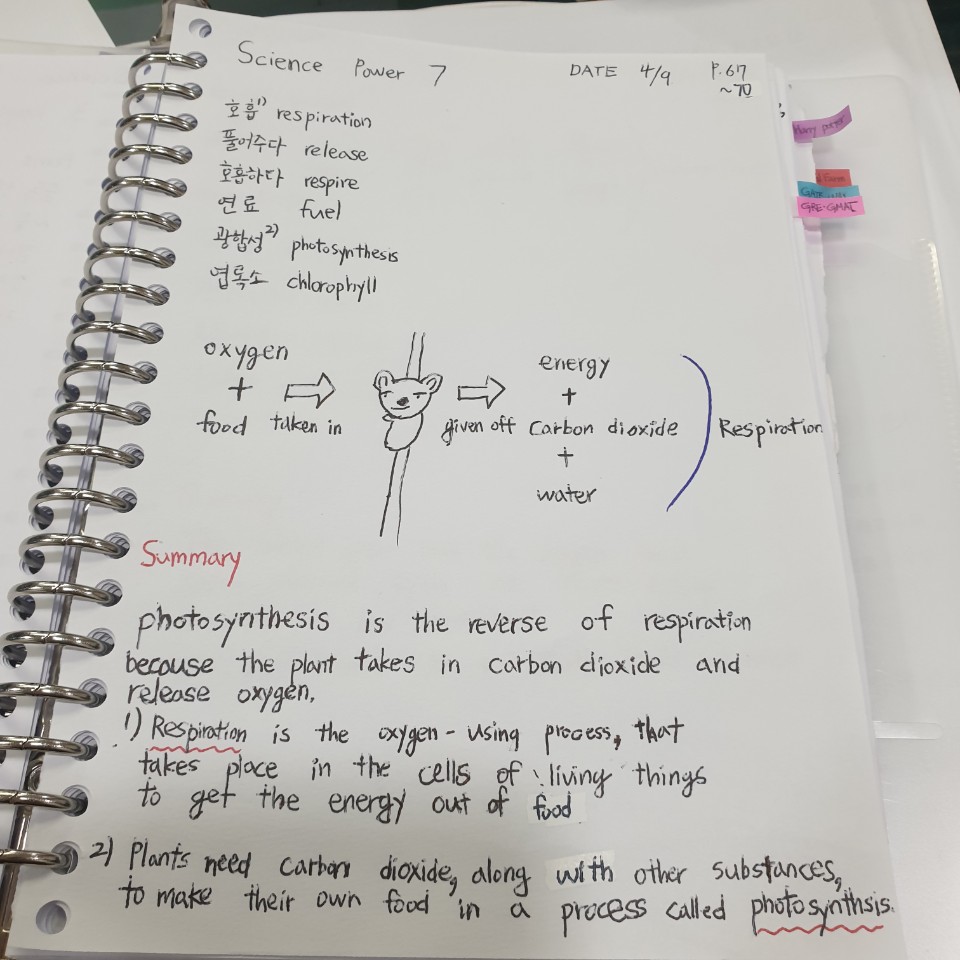 Science Power 7 DATE 4/9 P.67
~70
호흡1) respiration
풀어주다 release
호흡하다 respire
연료 fuel
광합성2) photosynthesis
엽록소 chlorophyll
oxygen
+
food taken in
given off
energy
+
Carbon dioxide
+
water
Respiration
Summary
photosynthesis is the reverse of respiration
because the plant takes in carbon dioxide and
release oxygen.
1) Respiration is the oxygen-using process, that
takes place in the cells of living things
to get the energy out of food
2) Plants need carbon dioxide, along with other substances,
to make their own food in a process called photosynthsis.
Harry potter
GRE-GMAT